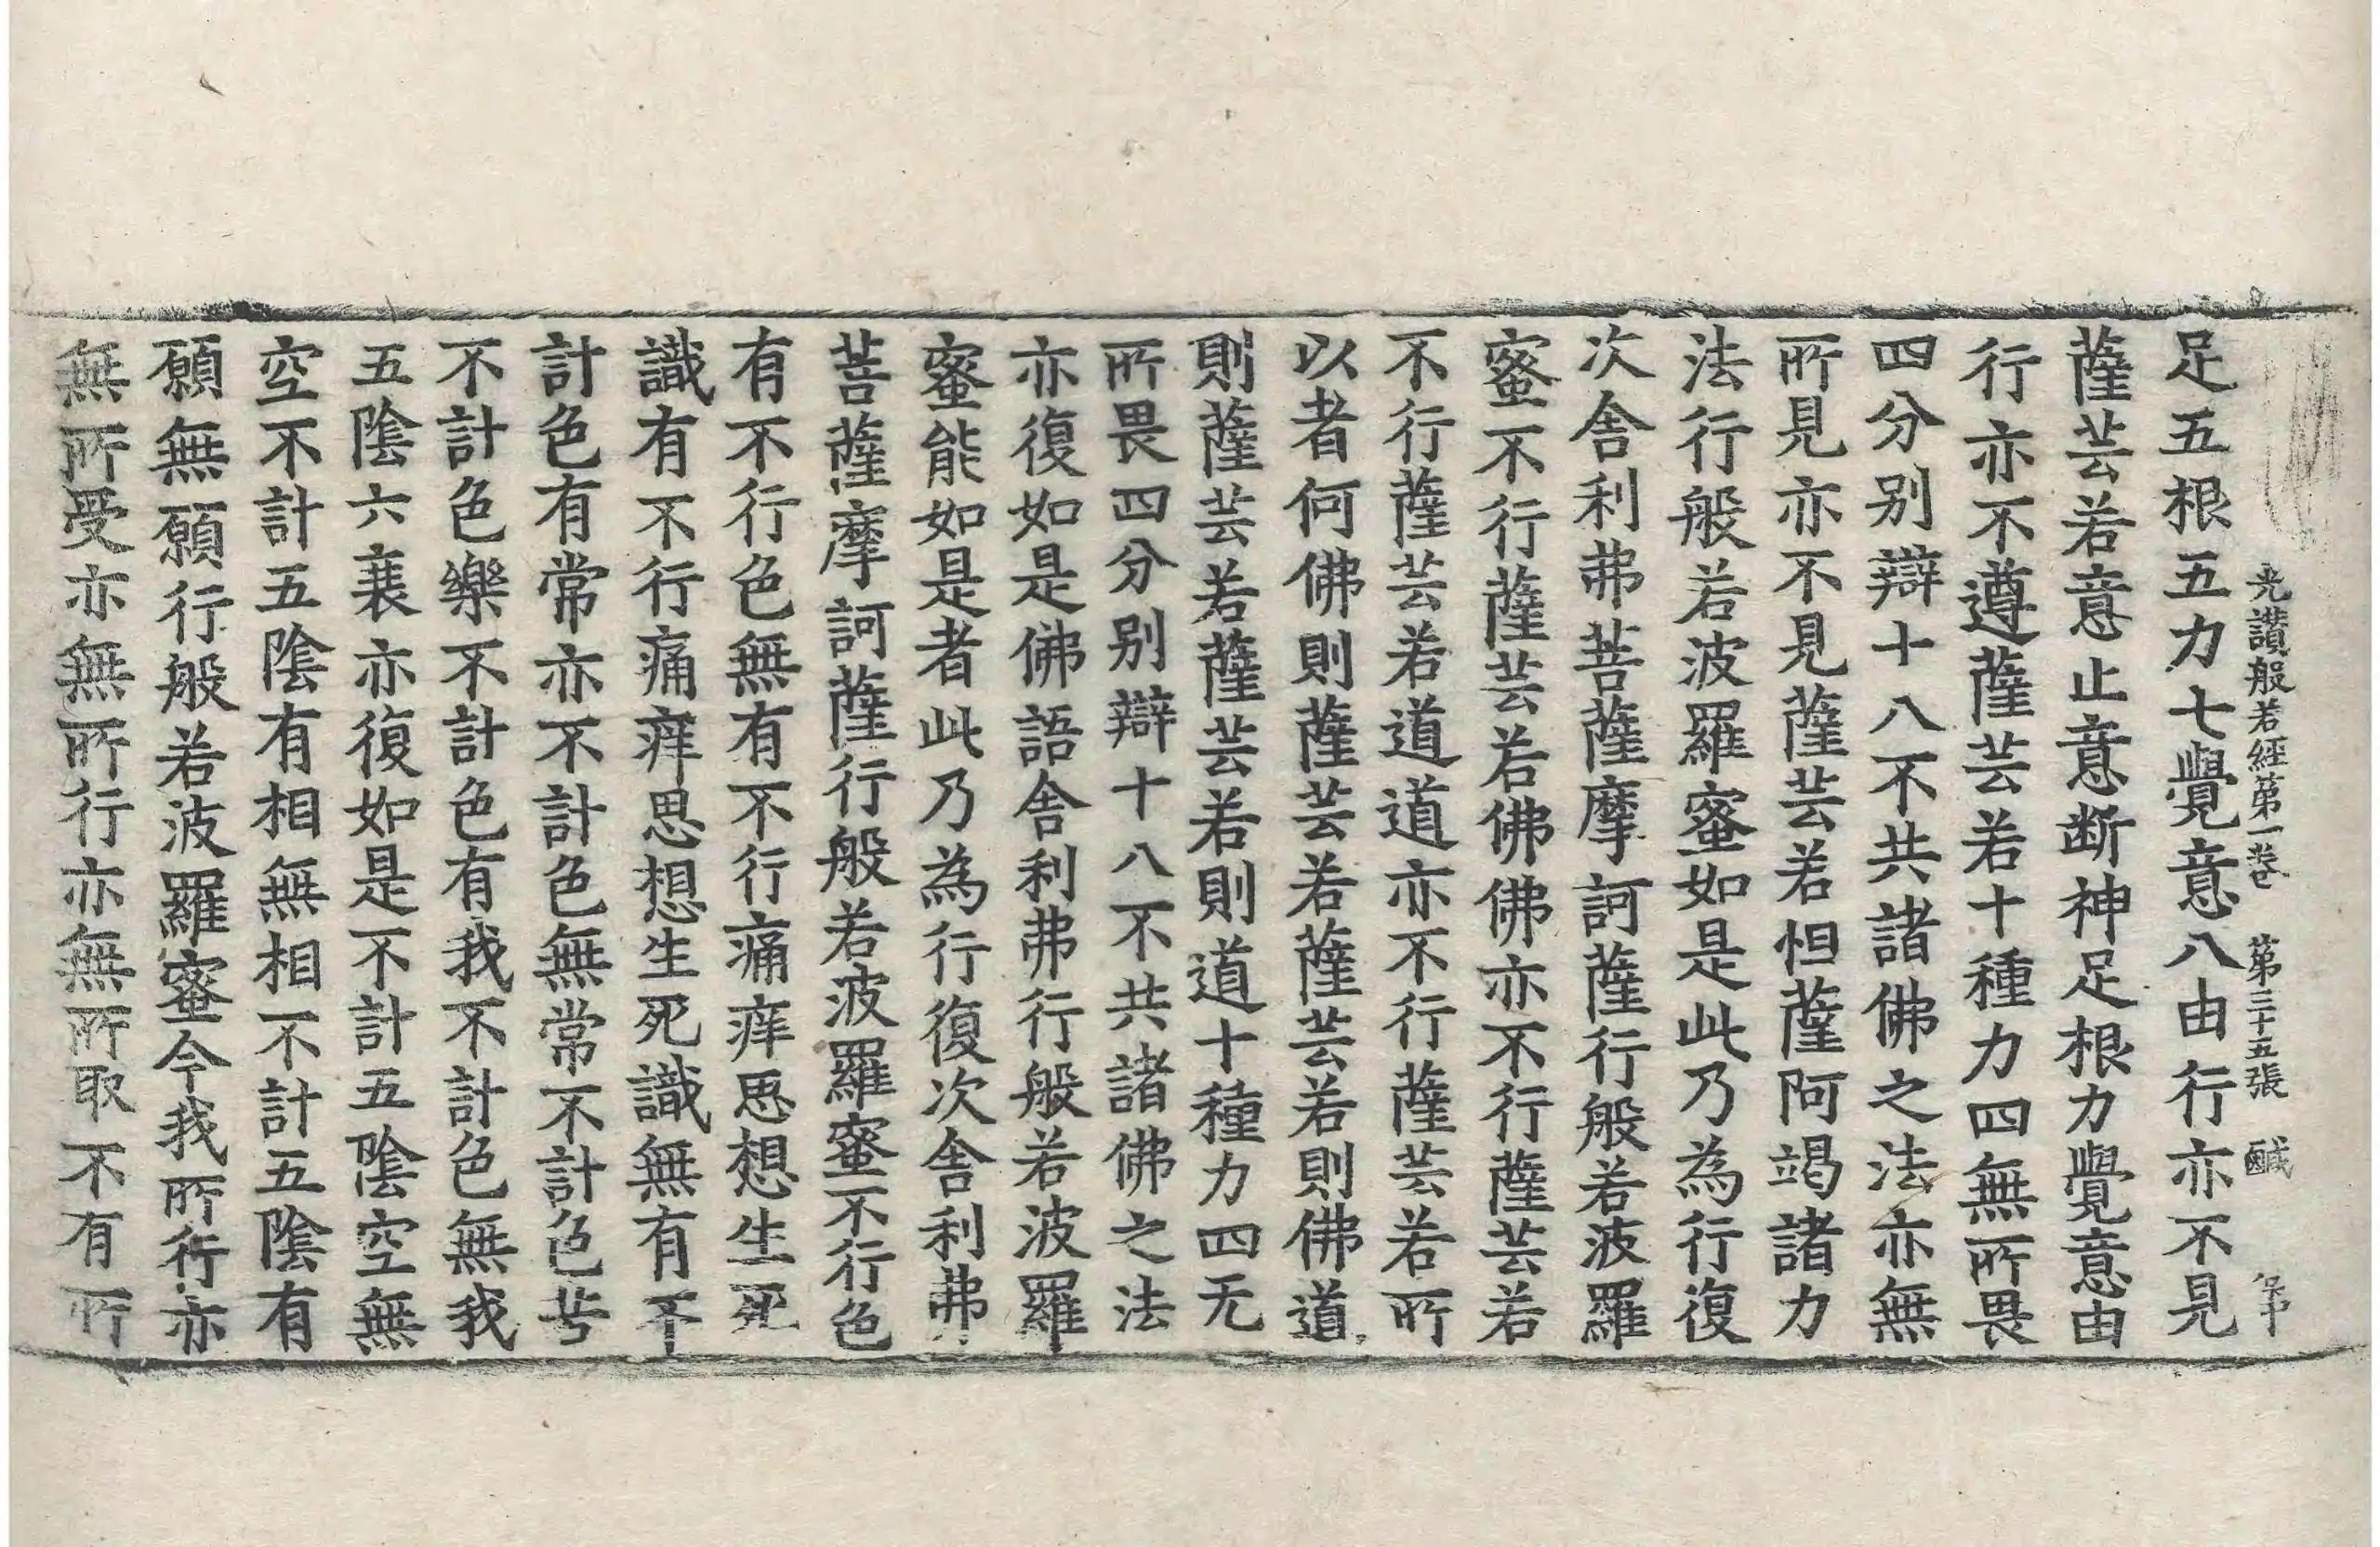 光讃般若經第一卷　第三十五張　鹹
足五根五力七覺意八由行亦不見
薩芸若意止意断神足根力覺意由
行亦不遵薩芸若十種力四無所畏
四分別辯十八不共諸佛之法亦無
所見亦不見薩芸若怛薩阿竭諸力
法行般若波羅蜜如是此乃為行復
次舎利弗菩薩摩訶薩行般若波羅
蜜不行薩芸若佛佛亦不行薩芸若
不行薩芸若道道亦不行薩芸若所
以者何佛則薩芸若薩芸若則佛道
則薩芸若薩芸若則道十種力四无
所畏四分別辯十八不共諸佛之法
亦復如是佛語舎利弗行般若波羅
蜜能如是者此乃為行復次舎利弗
菩薩摩訶薩行般若波羅蜜不行色
有不行色無有不行痛痒思想生死
識有不行痛痒思想生死識無有不
計色有常亦不計色無常不計色苦
不計色樂不計色有我不計色無我
五陰六衰亦復如是不計五陰空無
空不計五陰有相無相不計五陰有
願無願行般若波羅蜜今我所行亦
無所受亦無所行亦無所取不有所